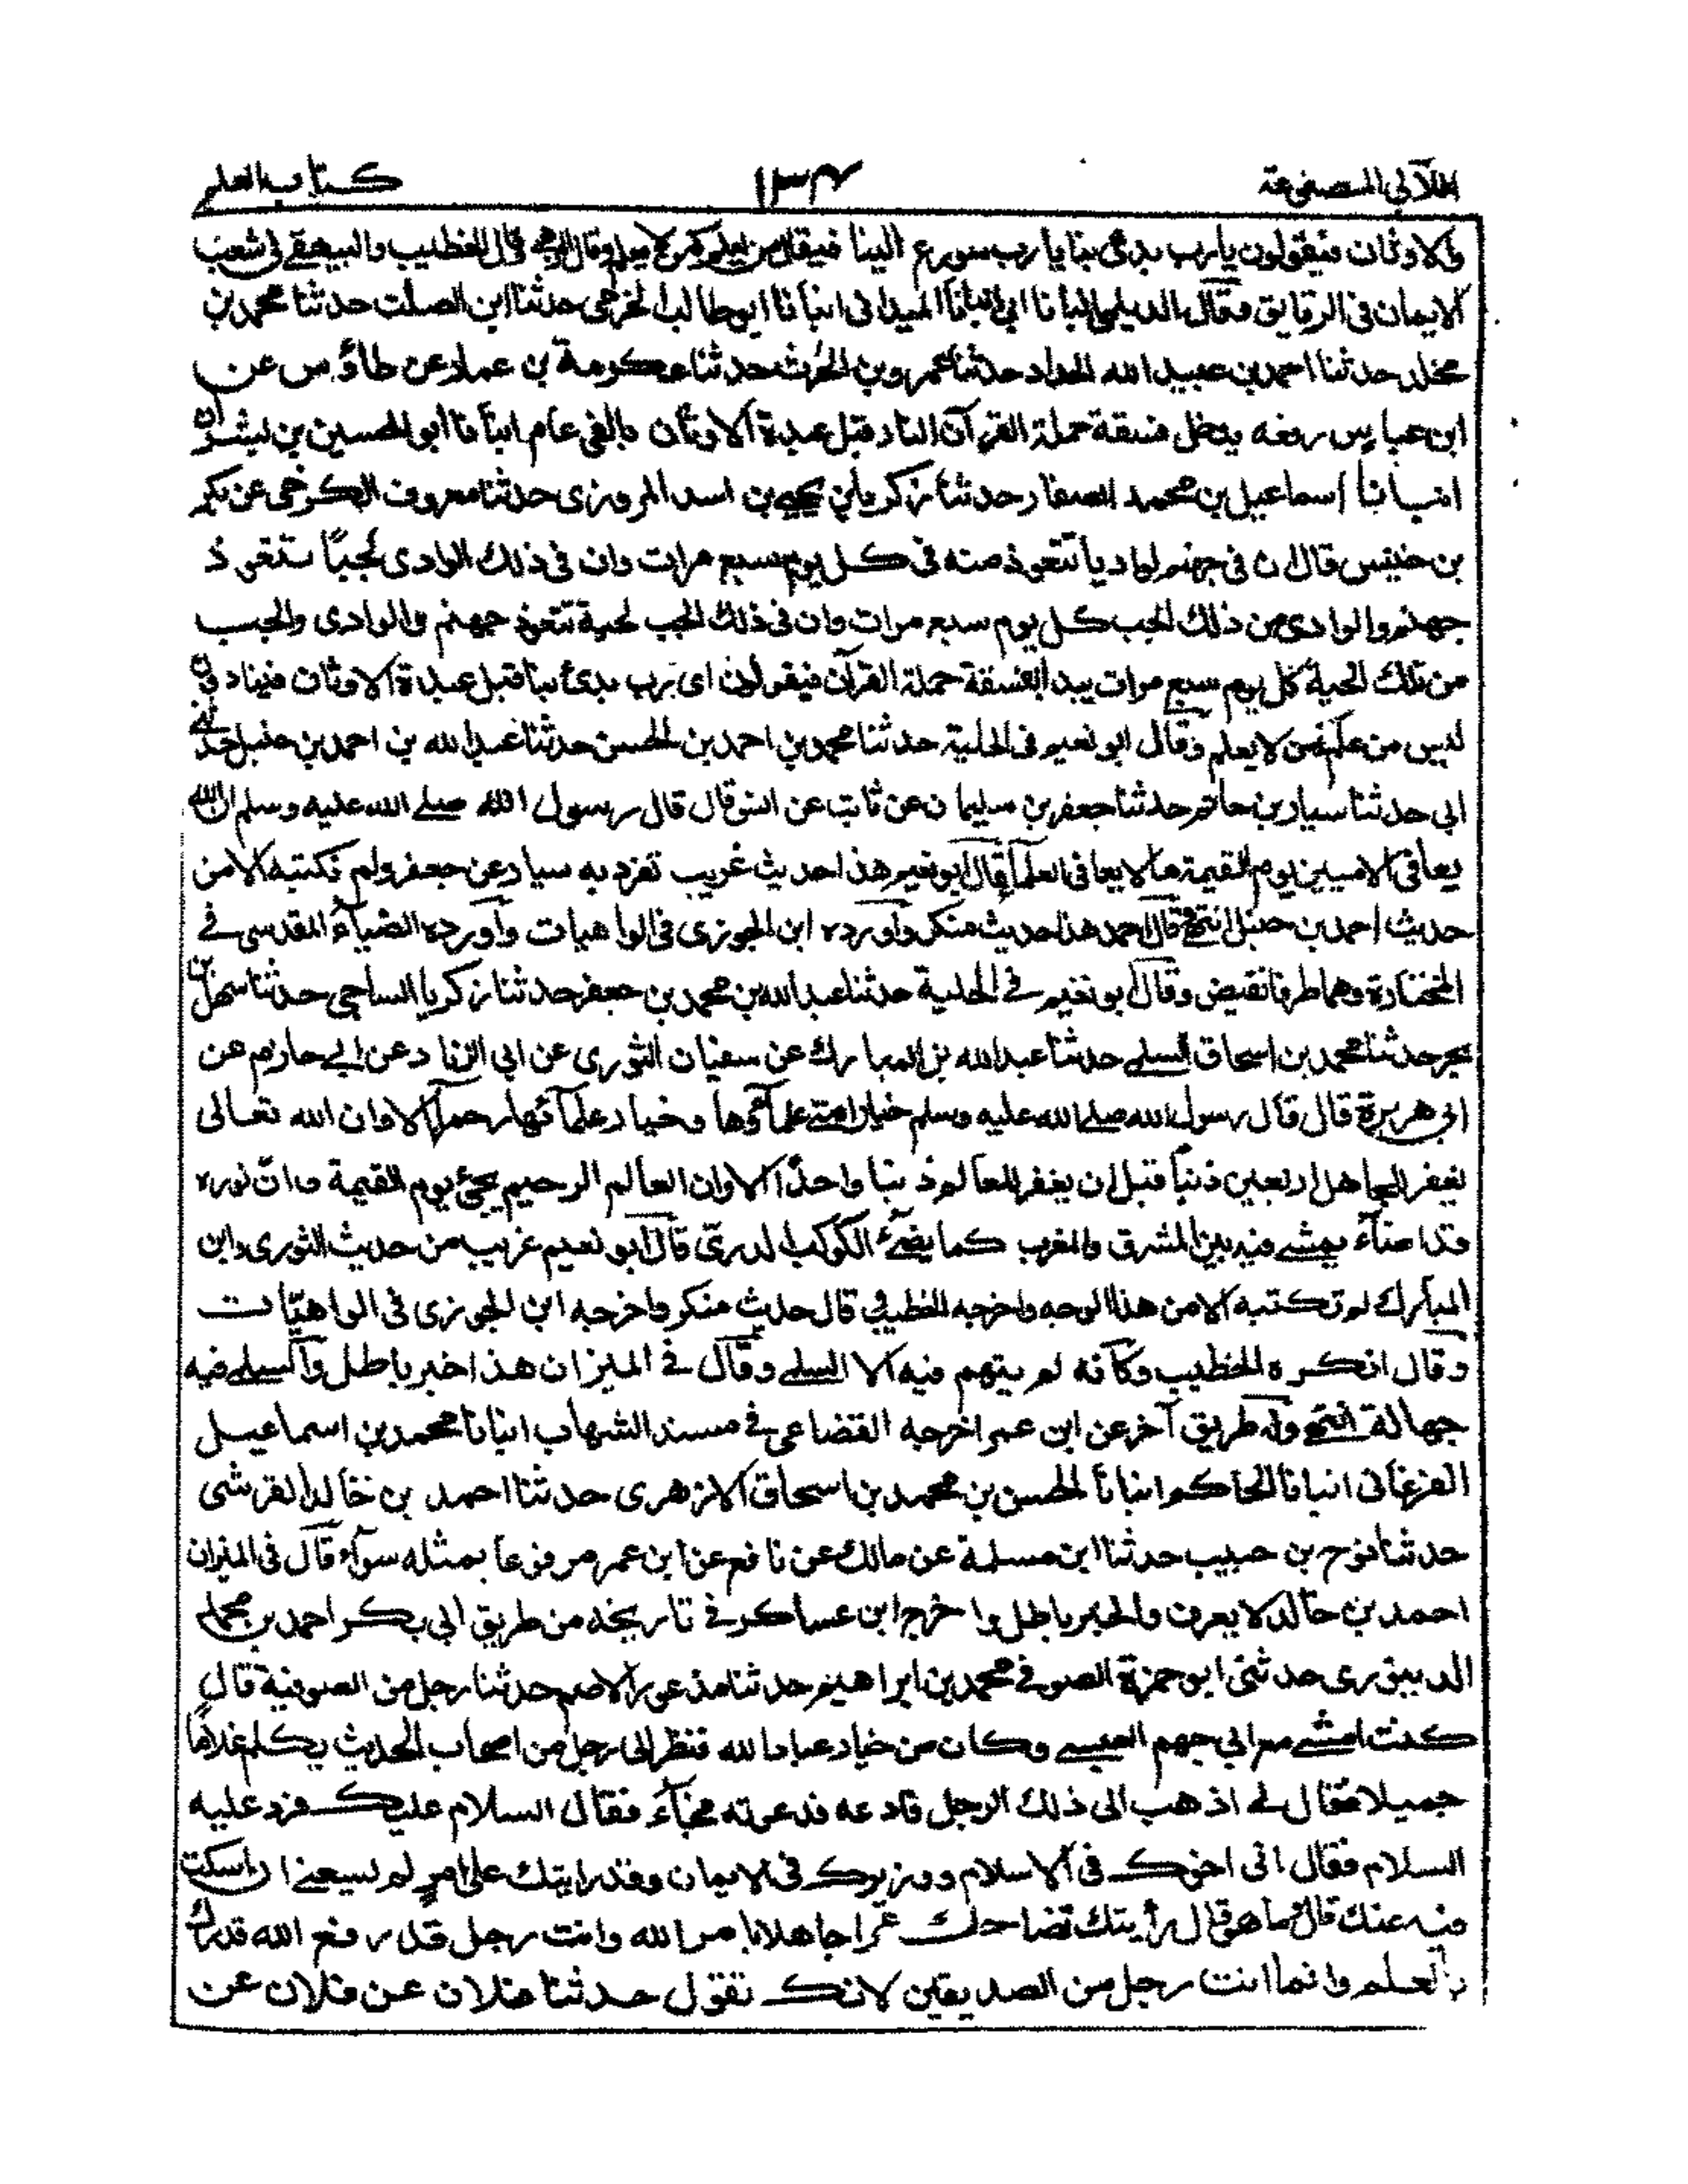 اللآلي المصنوعة ١٣٤ كتاب العلم
والاوثان فيقولون يا رب بدئ بنا يا رب سورع الينا فيقال من يعلم كمن لا يعلم وقال الخطيب والبيهقي في شعب
الايمان في الرقايق وقال الديلمي انبأنا ابي انبأنا الميداني انبأنا ابو طالب الحربي حدثنا ابن الصلت حدثنا محمد بن
مخلد حدثنا احمد بن عبيد الله الحداد حدثنا عمرو بن الحرث حدثنا عكرمة بن عمار عن طاؤس عن
ابن عباس رفعه يدخل فسقة حملة القرآن النار قبل عبدة الاوثان بالفي عام انبأنا ابو الحسين بن بشران
انبانا اسماعيل بن محمد الصفار حدثنا زكريا بن يحيى بن اسد المروزى حدثنا معروف الكرخى عن بكر
بن خنيس قال ان في جهنم لواديا تتعوذ منه في كل يوم سبع مرات وان في ذلك الوادى لجبا تتعوذ
جهنم والوادى من ذلك الجب كل يوم سبع مرات وان في ذلك الجب لحية تتعوذ جهنم والوادى والجب
من تلك الحية كل يوم سبع مرات يبدأ بفسقة حملة القرآن فيقولون اى رب بدئ بنا قبل عبدة الاوثان فيناد
ليس من علم كمن لا يعلم وقال ابو نعيم في الحلية حدثنا محمد بن احمد بن الحسن حدثنا عبد الله بن احمد بن حنبل حدثني
ابي حدثنا سيار بن حاتم حدثنا جعفر بن سليمان عن ثابت عن انس قال قال رسول الله صلى الله عليه وسلم ان الله
يعافى الاميين يوم القيمة ما لا يعافى العلمآ قال ابو نعيم هذا حديث غريب تفرد به سيار عن جعفر ولم نكتبه الا من
حديث احمد بن حنبل انتهى قال احمد هذا حديث منكر واورده ابن الجوزى في الواهيات واورده الضياء المقدسى في
المختارة وهما طرفا نقيض وقال ابو نعيم في الحلية حدثنا عبد الله بن محمد بن جعفر حدثنا زكريا الساجى حدثنا سهل بن
بحر حدثنا محمد بن اسحاق السلمى حدثنا عبد الله بن المبارك عن سفيان الثورى عن ابي الزناد عن ابي حازم عن
ابي هريرة قال قال رسول الله صلى الله عليه وسلم خيار امتى علمآؤها وخيار علمآئها رحمآؤها الا وان الله تعالى
يغفر للجاهل اربعين ذنبا قبل ان يغفر للعالم ذنبا واحدا الا وان العالم الرحيم يجئ يوم القيمة وان نوره
قد اضآء يمشى فيه بين المشرق والمغرب كما يضئ الكوكب الدرى قال ابو نعيم غريب من حديث الثورى وابن
المبارك لم نكتبه الا من هذا الوجه واخرجه الخطيب قال حديث منكر واخرجه ابن الجوزى في الواهيات
وقال انكره الخطيب وكأنه لم يتهم فيه الا السلمى وقال في الميزان هذا خبر باطل والسلمى فيه
جهالة انتهى وله طريق آخر عن ابن عمر اخرجه القضاعى في مسند الشهاب انبانا محمد بن اسماعيل
الفرغانى انبانا الحاكم انبانا الحسن بن محمد بن اسحاق الازهرى حدثنا احمد بن خالد القرشى
حدثنا نوح بن حبيب حدثنا ابن مسلمة عن مالك عن نافع عن ابن عمر مرفوعا بمثله سوآء قال في الميزان
احمد بن خالد لا يعرف والخبر باطل واخرج ابن عساكر في تاريخه من طريق ابي بكر احمد بن محمد
الدينورى حدثنى ابو حمزة الصوفى محمد بن ابراهيم حدثنا مذعور الاصم حدثنا رجل من الصوفية قال
كنت امشى مع ابي جهم العبسى وكان من خيار عباد الله فنظر الى رجل من اصحاب الحديث يكلم غلاما
جميلا فقال لى اذهب الى ذلك الرجل فادعه فدعوته فجآء فقال السلام عليك فرد عليه
السلام فقال انى اخوك في الاسلام ووزيرك في الايمان وقد رايتك على امر لم يسعنى ان اسكت
فيه عنك قال ما هو قال رأيتك تضاحك غرا جاهلا بامر الله وانت رجل قد رفع الله قدرك
بالعلم وانما انت رجل من الصديقين لانك تقول حدثنا فلان عن فلان عن